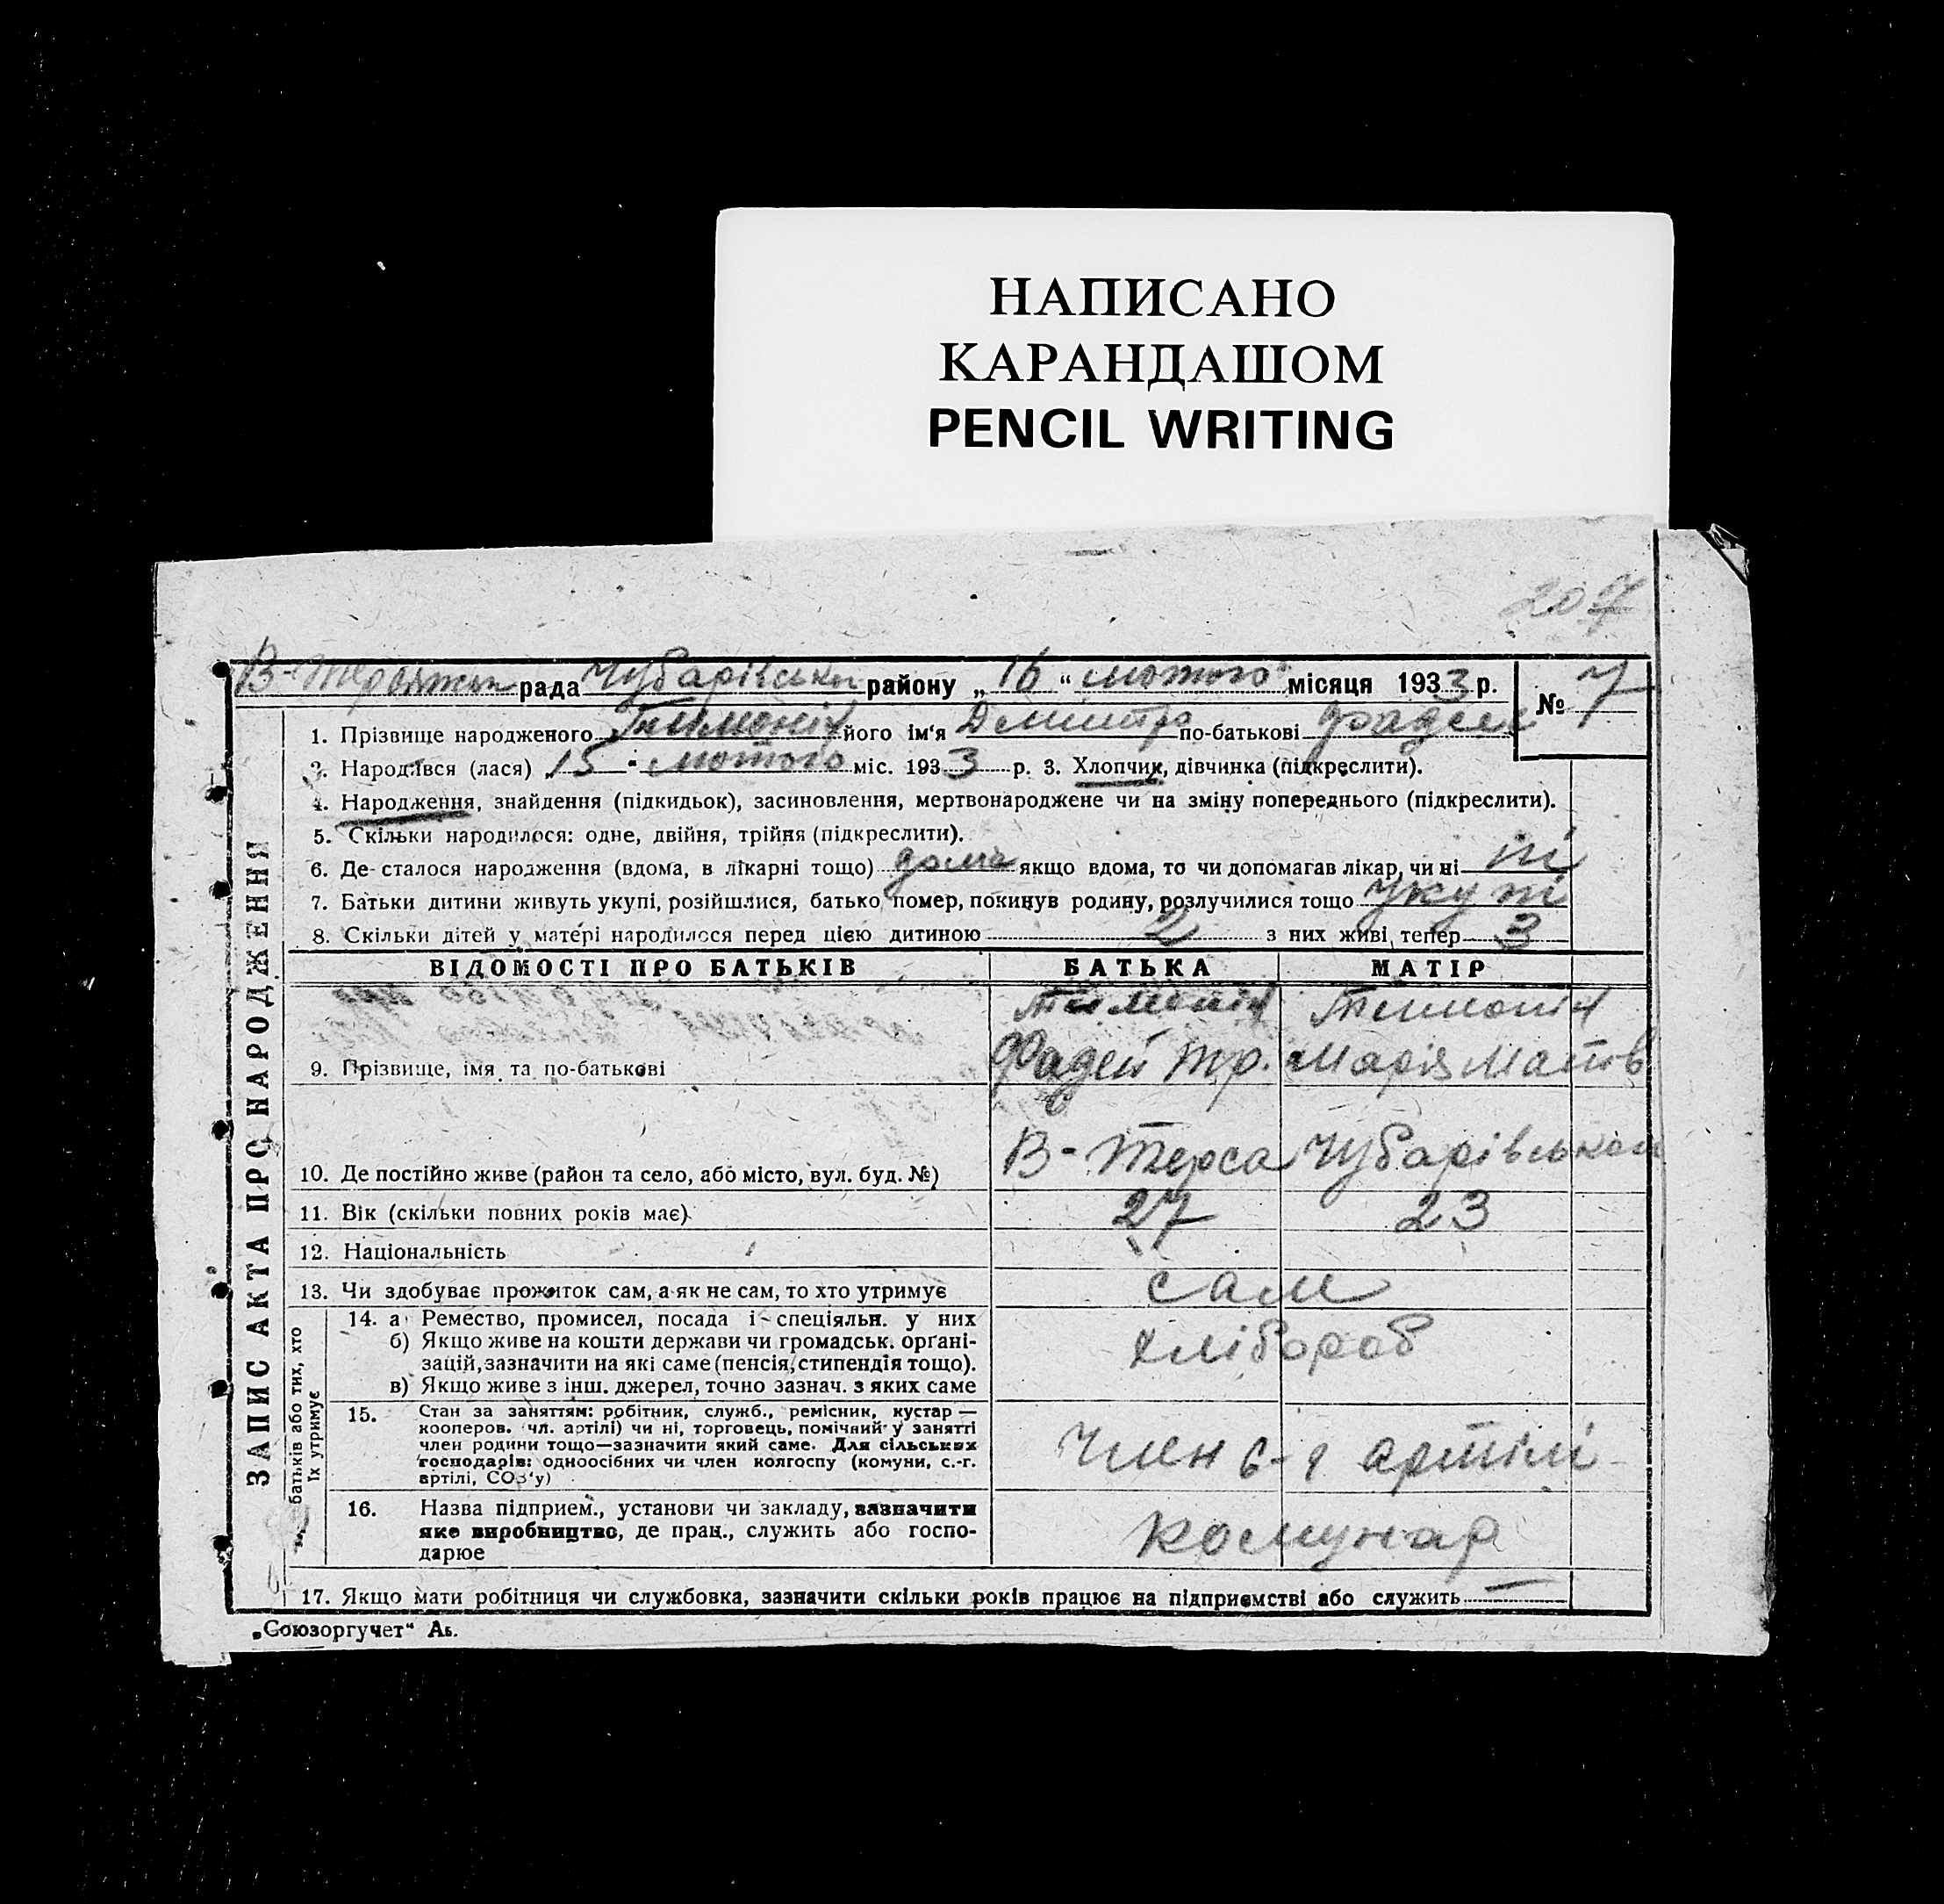 НАПИСАНО
КАРАНДАШОМ
PENCIL WRITING
207
рада Чубарівська району „16“ лютого місяця 1933 р. № 7
1. Прізвище народженого Тимоніч його ім'я Дмитро по-батькові Фадеев
2. Народився (лася) „15“ лютого міс. 1933 р. 3. Хлопчик, дівчинка (підкреслити).
4. Народження, знайдення (підкидьок), засиновлення, мертвонароджене чи на зміну попереднього (підкреслити).
5. Скільки народилося: одне, двійня, трійня (підкреслити).
6. Де сталося народження (вдома, в лікарні тощо) дома якщо вдома, то чи допомагав лікар, чи ні ні
7. Батьки дитини живуть укупі, розійшлися, батько помер, покинув родину, розлучилися тощо укупі
8. Скільки дітей у матері народилося перед цією дитиною 2 з них живі тепер 3
ВІДОМОСТІ ПРО БАТЬКІВ БАТЬКА МАТІР
Тимоніч Тимоніч
9. Прізвище, імя та по-батькові Фадей Тр. Марія Матв
10. Де постійно живе (район та село, або місто, вул. буд. №) В-Терса Чубарівської
11. Вік (скільки повних років має) 27 23
12. Національність
13. Чи здобуває прожиток сам, а як не сам, то хто утримує сам
14. а) Ремество, промисел, посада і спеціяльн. у них
б) Якщо живе на кошти держави чи громадськ. органі-
зацій, зазначити на які саме (пенсія, стипендія тощо). хлібороб
в) Якщо живе з інш. джерел, точно зазнач. з яких саме
15. Стан за заняттям: робітник, служб., ремісник, кустар —
кооперов. чл. артілі) чи ні, торговець, помічний у занятті
член родини тощо—зазначити який саме. Для сільських
господарів: одноосібних чи член колгоспу (комуни, с.-г.
артілі, СОЗ'у) член с-г артілі
16. Назва підприєм., установи чи закладу, зазначити
яке виробництво, де прац., служить або госпо-
дарює комунар
17. Якщо мати робітниця чи службовка, зазначити скільки років працює на підприємстві або служить —
ЗАПИС АКТА ПРО НАРОДЖЕННЯ
батьків або тих, хто
їх утримує
„Союзоргучет“ Аь.